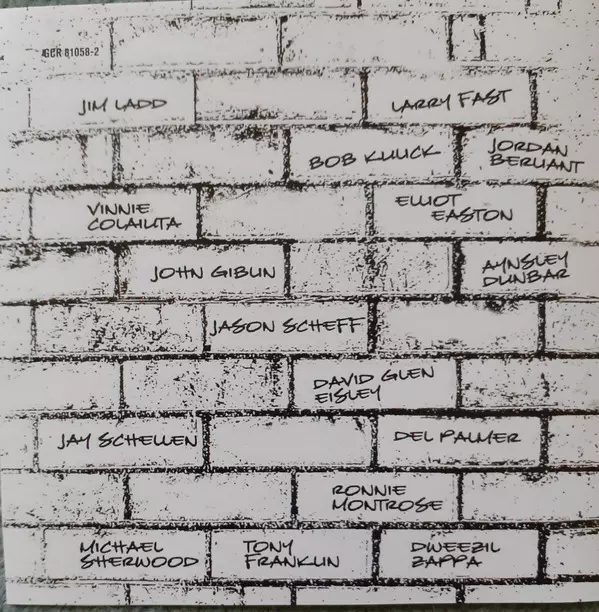 GCR 81058-2
JIM LADD
LARRY FAST
BOB KLIUCK
JORDAN
BERLIANT
VINNIE
COLAIUTA
ELLIOT
EASTON
JOHN GIBLIN
AYNSLEY
DUNBAR
JASON SCHEFF
DAVID GLEN
EISLEY
JAY SCHELLEN
DEL PALMER
RONNIE
MONTROSE
MICHAEL
SHERWOOD
TONY
FRANKLIN
DWEEZIL
ZAPPA